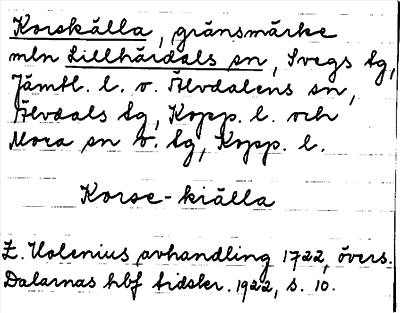 Korskälla, gränsmärke
mln Lillhärdals sn, Svegs tg,
Jämtl. l. o. Älvdalens sn,
Älvdals tg, Kopp. l. och
Mora sn o. tg, Kopp. l.
Korse-kiälla
Z. Holenius avhandling 1722, övers.
Dalarnas hbf tidskr. 1922, s. 10.